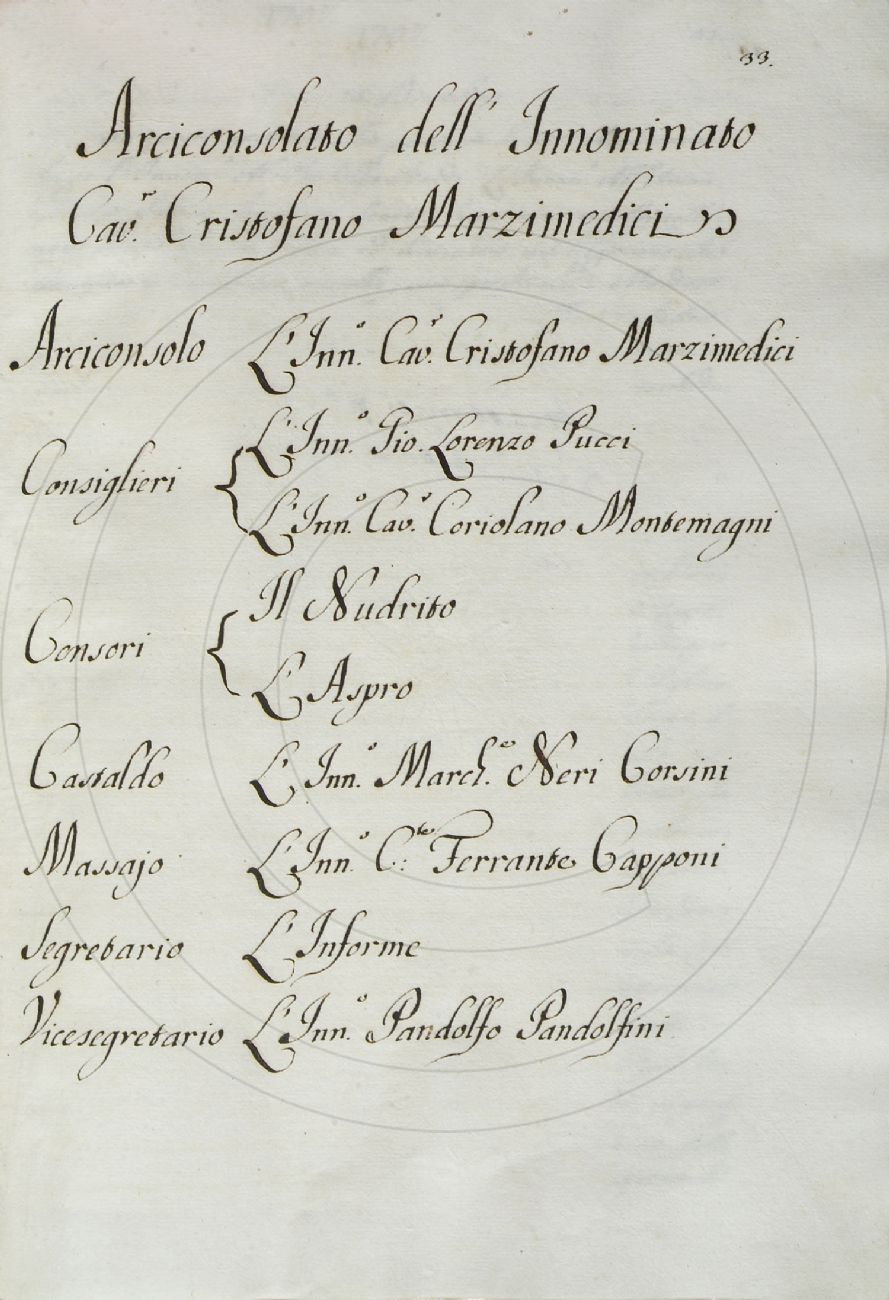 33.
Arciconsolato dell' Innominato
Cav.r Cristofano Marzimedici
Arciconsolo L'Inn.o Cav.r Cristofano Marzimedici
Consiglieri { L'Inn.o Pio. Lorenzo Pucci
L'Inn.o Cav.r Coriolano Montemagni
Censori { Il Nudrito
L'Aspro
Castaldo L'Inn.o March.e Neri Corsini
Massajo L'Inn.o C:te Ferrante Capponi
Segretario L'Informe
Vicesegretario L'Inn.o Pandolfo Pandolfini